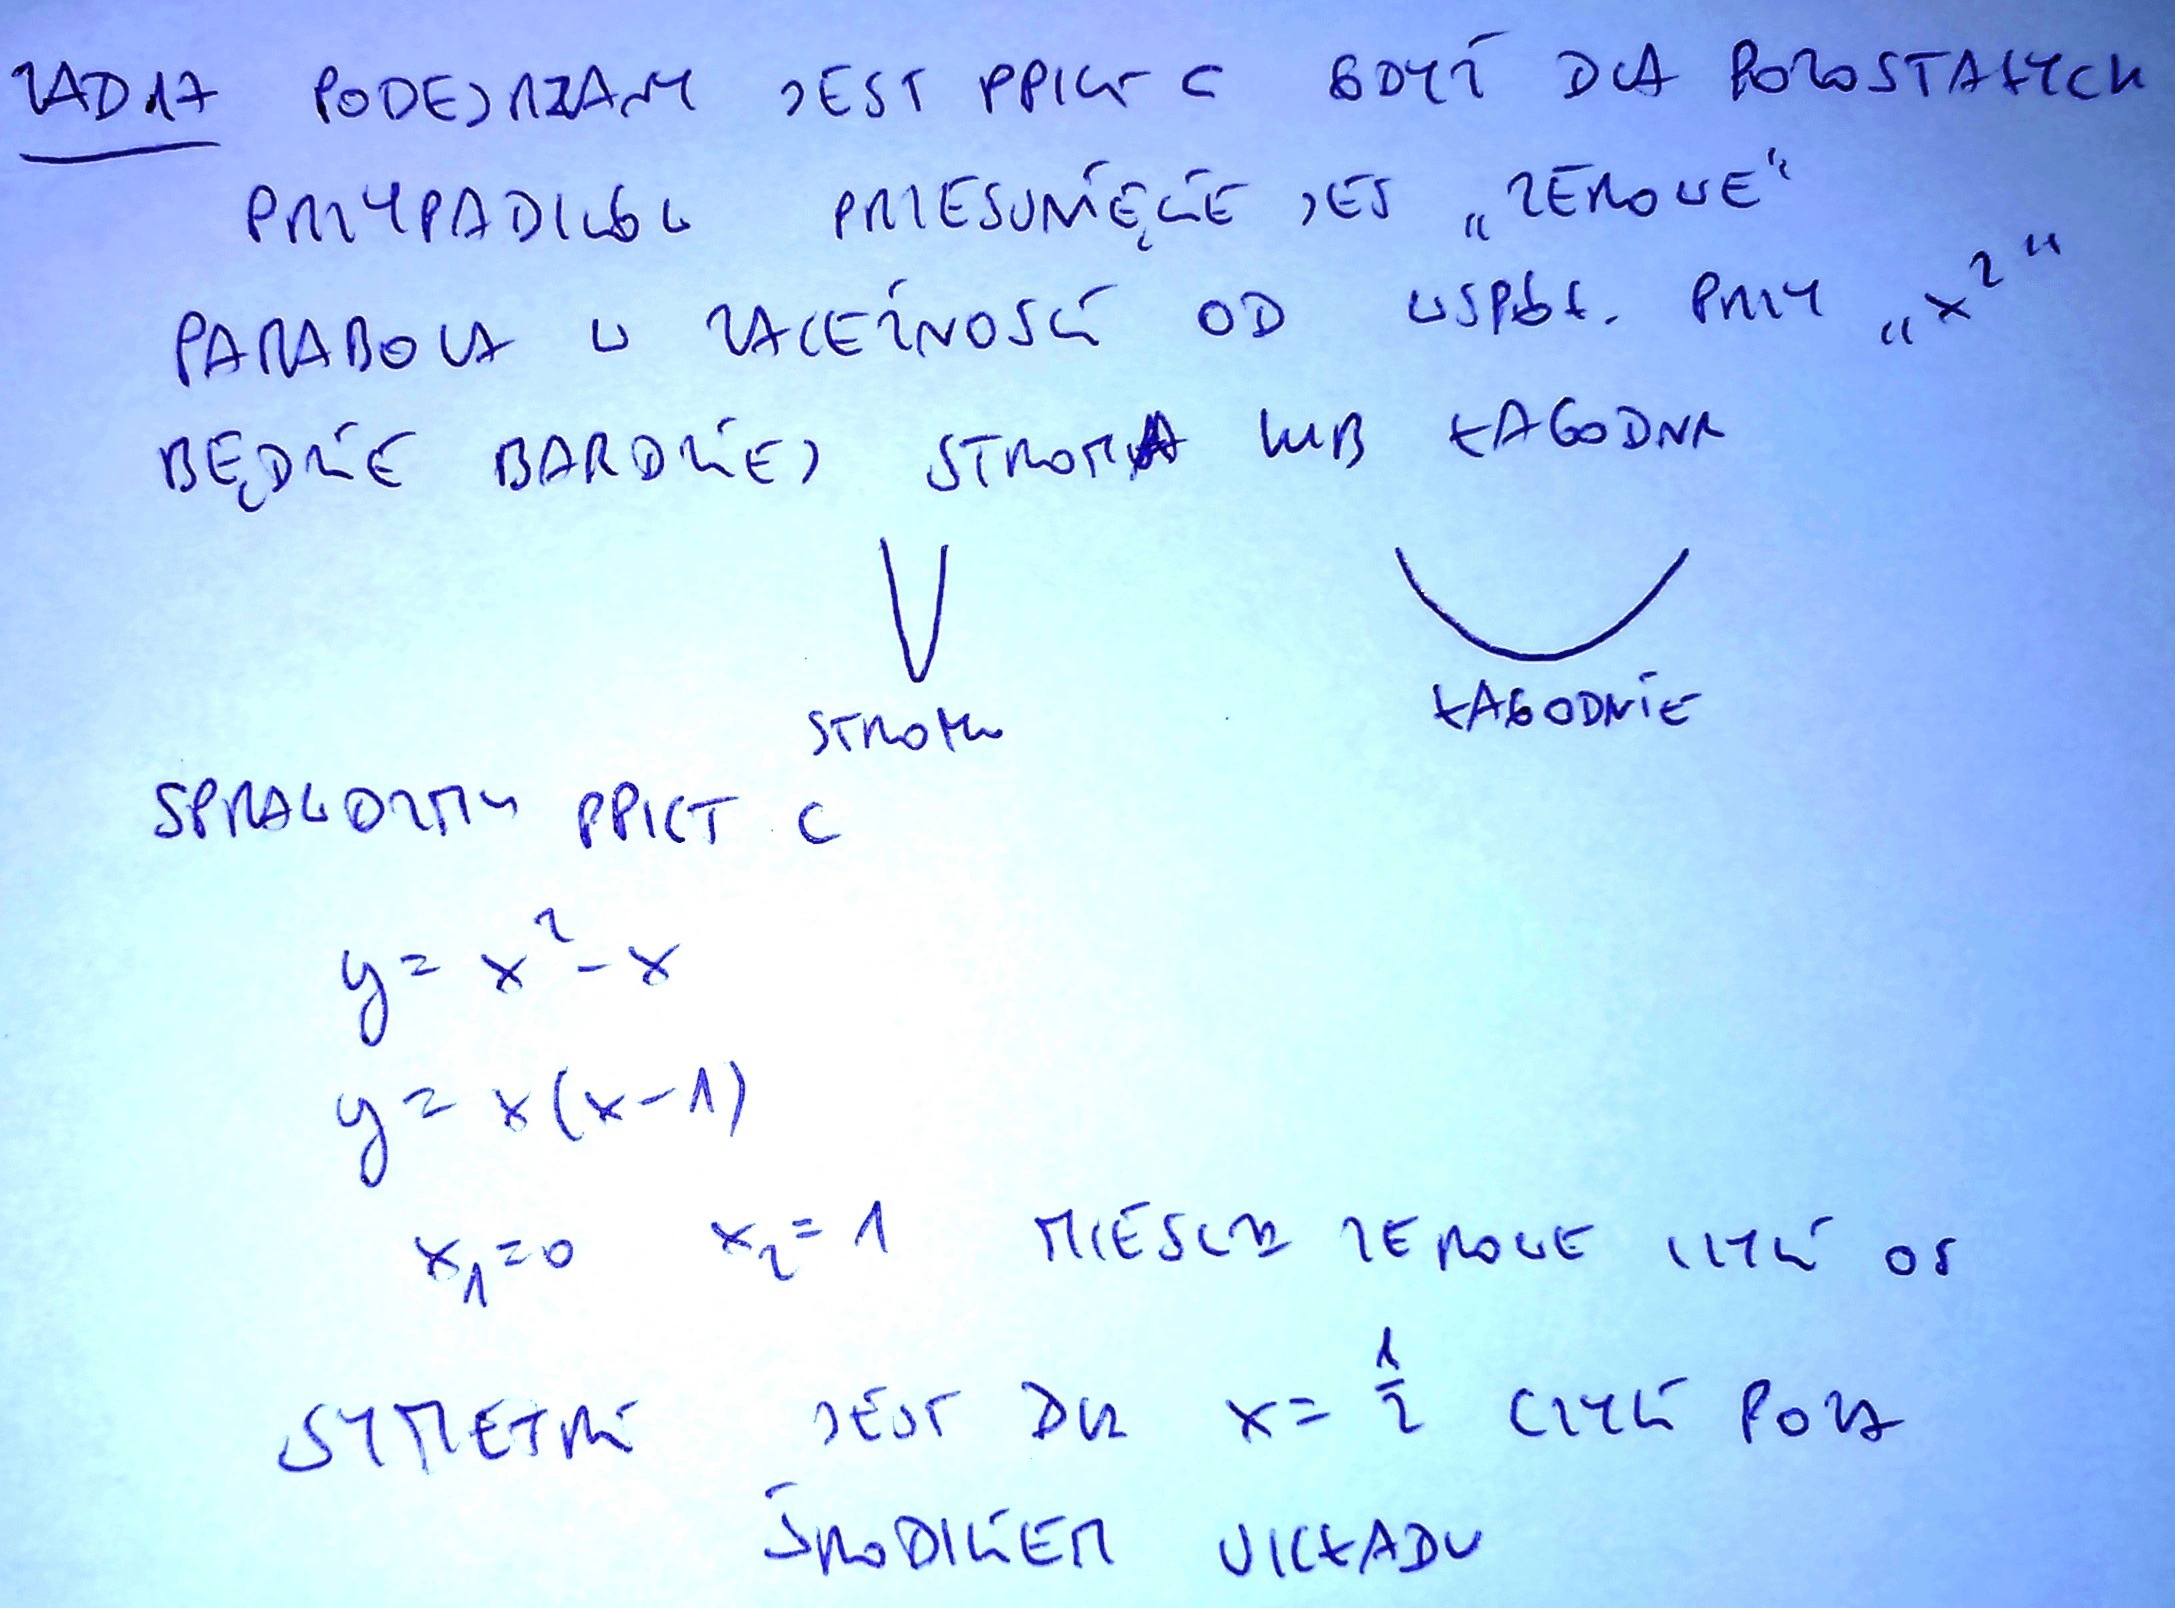 ZAD 17 PODEJRZANY JEST PPKT C GDYŻ DLA POZOSTAŁYCH
PRZYPADKÓW PRZESUNIĘCIE JES „ZEROWE"
PARABOLA W ZALEŻNOŚCI OD WSPÓŁ. PRZY „x²"
BĘDZIE BARDZIEJ STROMA LUB ŁAGODNA
STROMO
ŁAGODNIE
SPRAWDZMY PPKT C
y = x² - x
y = x(x-1)
x₁=0 x₂=1 MIESCA ZEROWE CZYLI OS
SYMETRI JEST DLA x = 1/2 CZYLI POZA
ŚRODKIEM UKŁADU